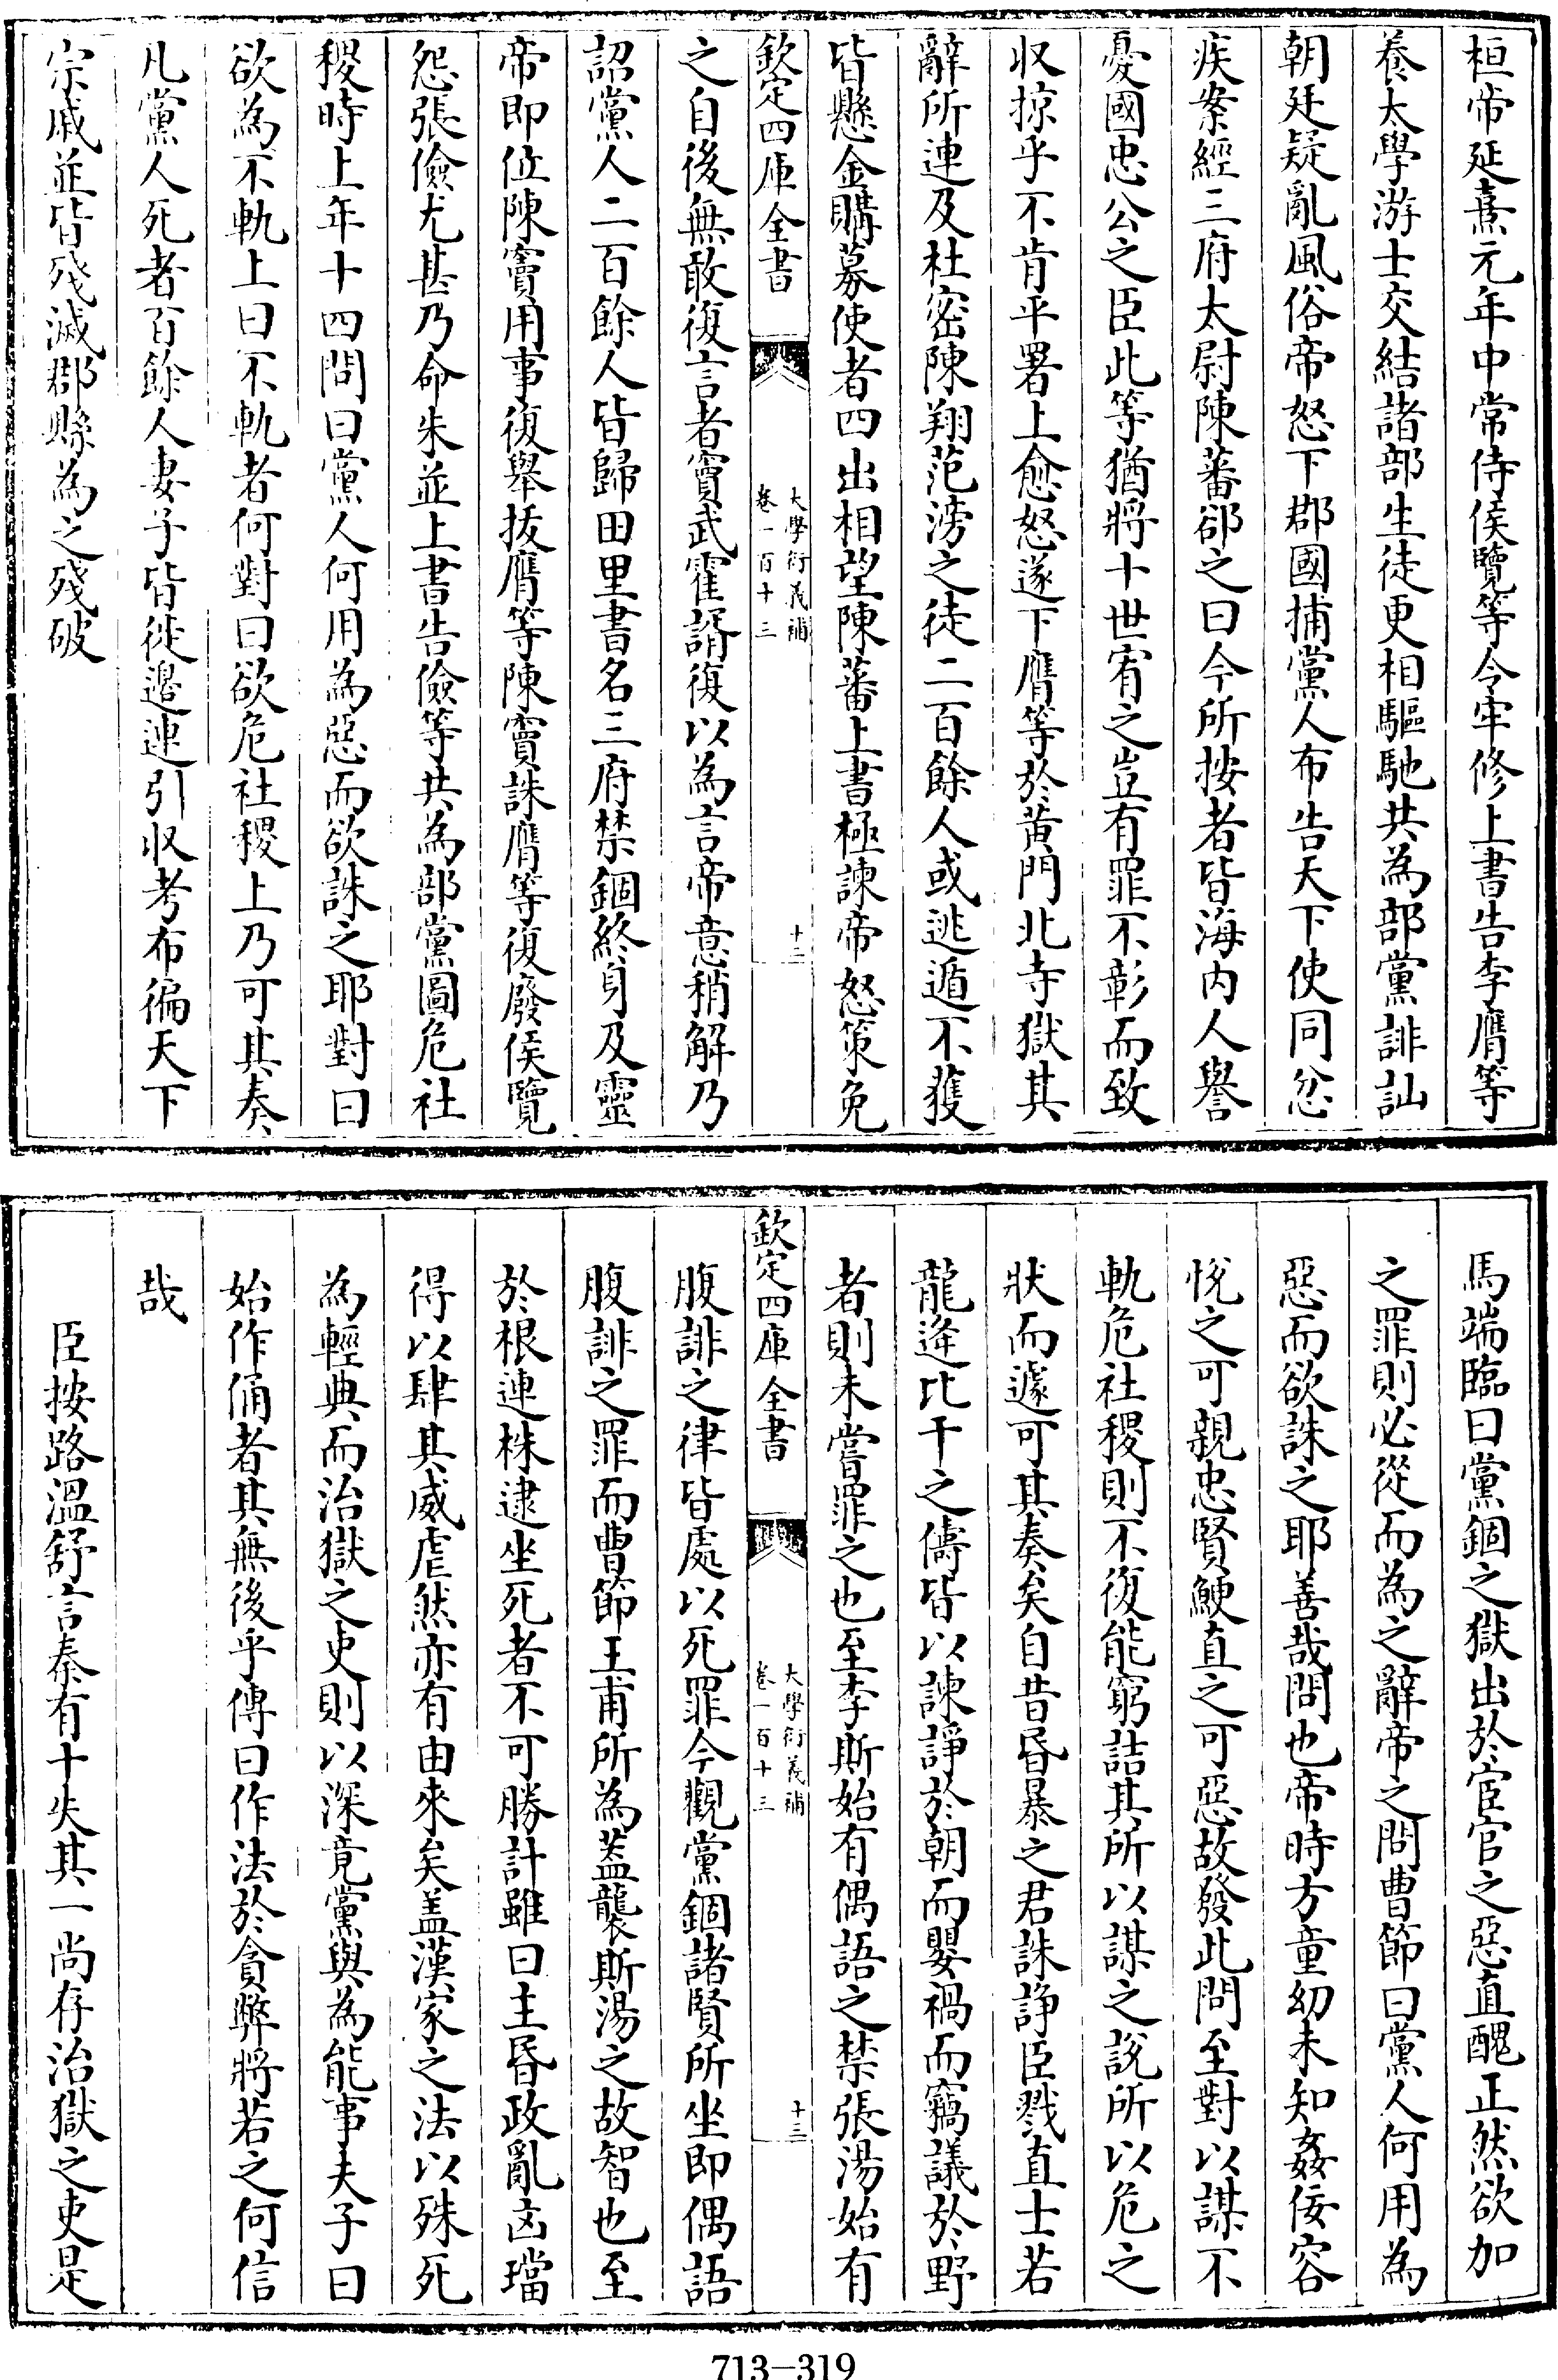 桓帝延熹元年中常侍侯覽等令牢修上書告李膺等
養太學游士交結諸部生徒更相驅馳共為部黨誹訕
朝廷疑亂風俗帝怒下郡國捕黨人布告天下使同忿
疾案經三府太尉陳蕃郤之曰今所按者皆海内人譽
憂國忠公之臣此等猶將十世宥之豈有罪不彰而致
収掠乎不肯平署上愈怒遂下膺等於黄門北寺獄其
辭所連及杜密陳翔范滂之徒二百餘人或逃遁不獲
皆懸金購募使者四出相望陳蕃上書極諫帝怒策免
欽定四庫全書
大學衍義補
卷一百十三
十二
之自後無敢復言者竇武霍諝復以為言帝意稍解乃
詔黨人二百餘人皆歸田里書名三府禁錮終身及靈
帝即位陳竇用事復舉拔膺等陳竇誅膺等復廢侯覽
怨張儉尤甚乃命朱並上書告儉等共為部黨圖危社
稷時上年十四問曰黨人何用為惡而欲誅之耶對曰
欲為不軌上曰不軌者何對曰欲危社稷上乃可其奏
凡黨人死者百餘人妻子皆徙邉連引収考布徧天下
宗戚並皆殘滅郡縣為之殘破
馬端臨曰黨錮之獄出於宦官之惡直醜正然欲加
之罪則必從而為之辭帝之問曹節曰黨人何用為
惡而欲誅之耶善哉問也帝時方童幼未知姦佞容
悅之可親忠賢鯁直之可惡故發此問至對以謀不
軌危社稷則不復能窮詰其所以謀之說所以危之
狀而遽可其奏矣自昔昏暴之君誅諍臣戮直士若
龍逄比干之儔皆以諫諍於朝而嬰禍而竊議於野
者則未嘗罪之也至李斯始有偶語之禁張湯始有
欽定四庫全書
大學衍義補
卷一百十三
十三
腹誹之律皆處以死罪今觀黨錮諸賢所坐即偶語
腹誹之罪而曹節王甫所為葢襲斯湯之故智也至
於根連株逮坐死者不可勝計雖曰主昏政亂凶璫
得以肆其威虐然亦有由來矣盖漢家之法以殊死
為輕典而治獄之吏則以深竟黨與為能事夫子曰
始作俑者其無後乎傳曰作法於貪弊將若之何信
哉
臣按路溫舒言秦有十失其一尚存治獄之吏是
713—319